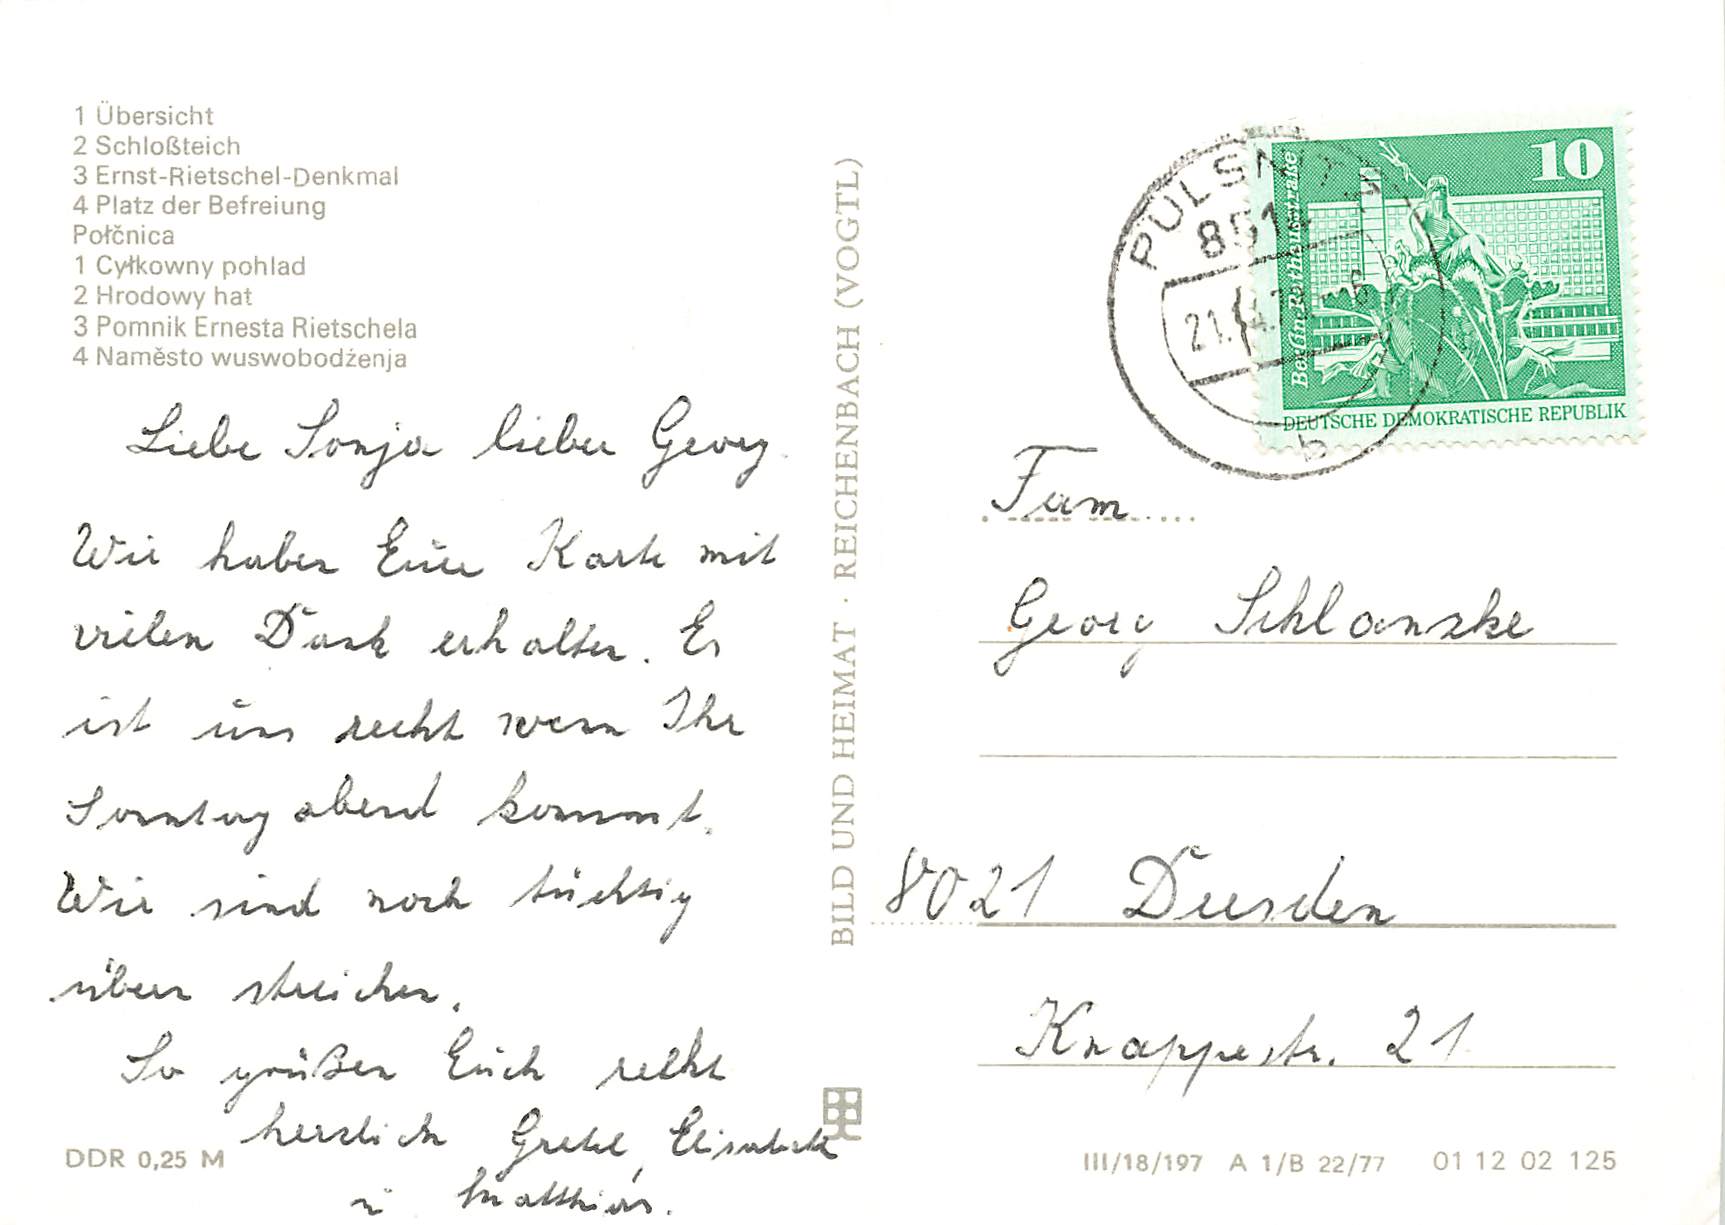 1 Übersicht
2 Schloßteich
3 Ernst-Rietschel-Denkmal
4 Platz der Befreiung
Połčnica
1 Cyłkowny pohlad
2 Hrodowy hat
3 Pomnik Ernesta Rietschela
4 Naměsto wuswobodźenja
Liebe Sonja lieber Georg.
Wir haben Eure Karte mit
vielen Dank erhalten. Es
ist uns recht wenn Ihr
Sonntag abend kommt.
Wir sind noch tüchtig
übern streichen.
So grüßen Euch recht
herzlich Gretel, Elisabeth
u Matthias.
DDR 0,25 M
BILD UND HEIMAT · REICHENBACH (VOGTL)
PULSNITZ
8514
21.
b
10
Berlin Rathausstraße
DEUTSCHE DEMOKRATISCHE REPUBLIK
Fam
Georg Schlanzke
8021 Dresden
Knappestr. 21
III/18/197 A 1/B 22/77 01 12 02 125